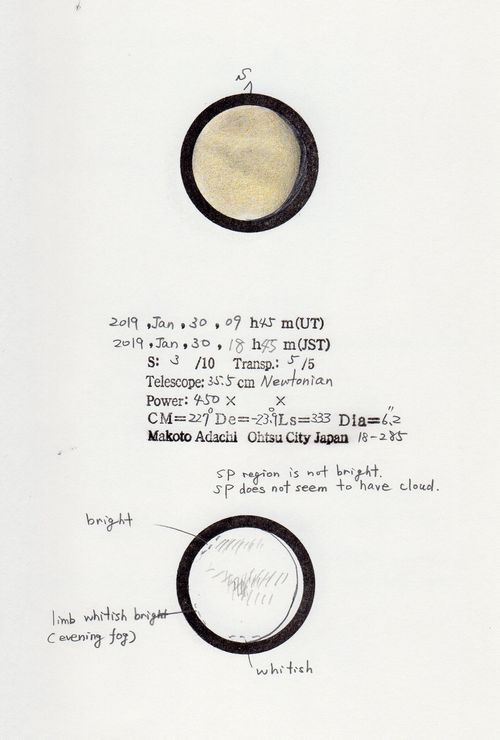 S
2019, Jan, 30, 09 h45 m(UT)
2019, Jan, 30, 18 h45 m(JST)
S: 3 /10 Transp.: 5 /5
Telescope: 35.5 cm Newtonian
Power: 450 × ×
CM=227° De=-23.9° Ls=333 Dia=6.2"
Makoto Adachi Ohtsu City Japan 18-285
SP region is not bright.
SP does not seem to have cloud.
bright
limb whitish bright
(evening fog)
whitish